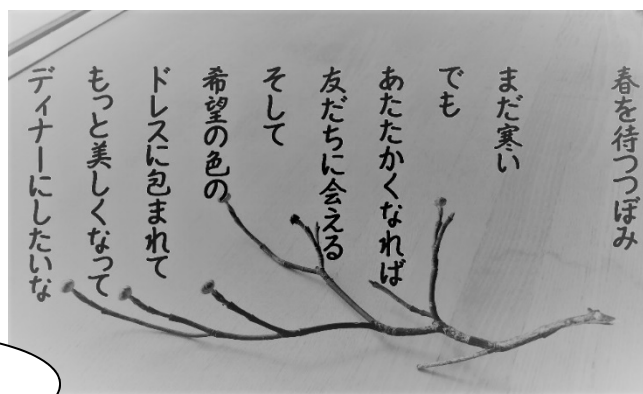 春を待つつぼみ
まだ寒い
でも
あたたかくなれば
友だちに会える
そして
希望の色の
ドレスに包まれて
もっと美しくなって
ディナーにしたいな